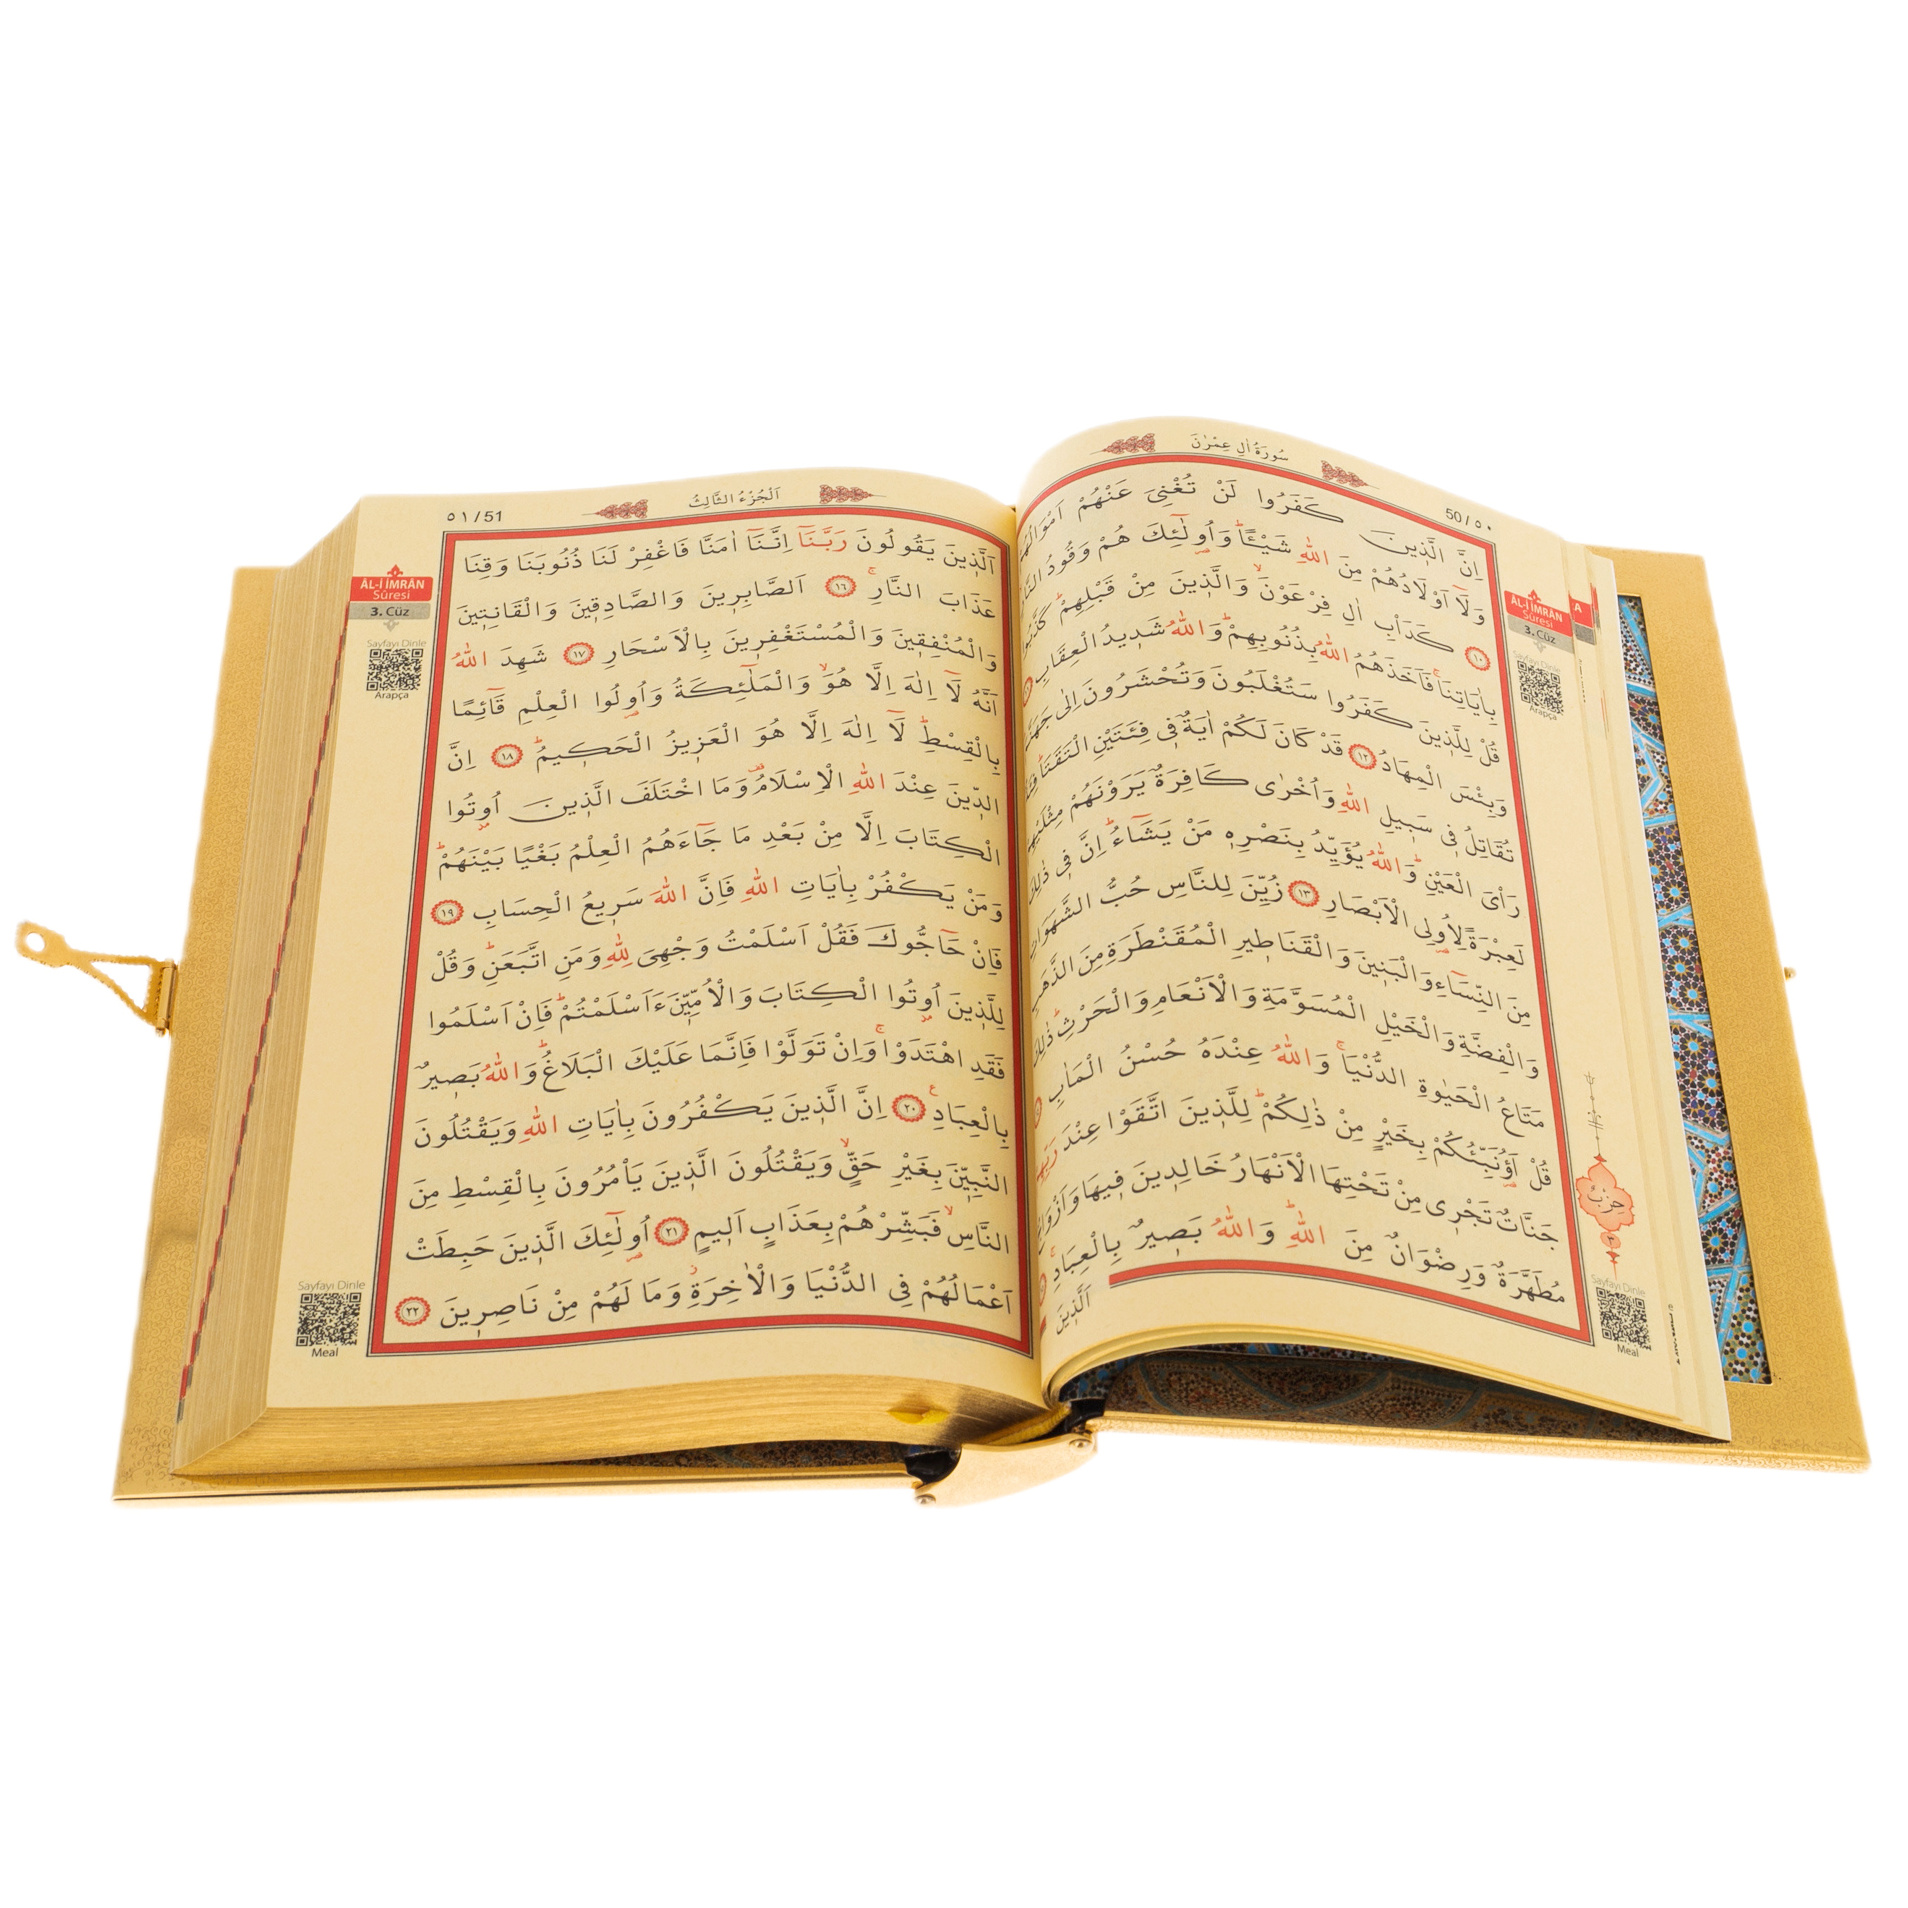 سُورَةُ اٰلِ عِمْرٰنَ
50/٥٠
اِنَّ الَّذ۪ينَ كَفَرُوا لَنْ تُغْنِيَ عَنْهُمْ
وَلَٓا اَوْلَادُهُمْ مِنَ اللّٰهِ شَيْـًٔاۜ وَاُو۬لٰٓئِكَ هُمْ وَقُودُ
١٠ كَدَأْبِ اٰلِ فِرْعَوْنَۙ وَالَّذ۪ينَ مِنْ قَبْلِهِمْۜ
بِاٰيَاتِنَاۚ فَاَخَذَهُمُ اللّٰهُ بِذُنُوبِهِمْۜ وَاللّٰهُ شَد۪يدُ الْعِقَابِ
قُلْ لِلَّذ۪ينَ كَفَرُوا سَتُغْلَبُونَ وَتُحْشَرُونَ اِلٰى
وَبِئْسَ الْمِهَادُ ١٢ قَدْ كَانَ لَكُمْ اٰيَةٌ ف۪ي فِئَتَيْنِ الْتَقَتَاۜ
تُقَاتِلُ ف۪ي سَب۪يلِ اللّٰهِ وَاُخْرٰى كَافِرَةٌ يَرَوْنَهُمْ
رَأْيَ الْعَيْنِۜ وَاللّٰهُ يُؤَيِّدُ بِنَصْرِه۪ مَنْ يَشَٓاءُۜ اِنَّ ف۪ي
لَعِبْرَةً لِاُو۬لِي الْاَبْصَارِ ١٣ زُيِّنَ لِلنَّاسِ حُبُّ
مِنَ النِّسَٓاءِ وَالْبَن۪ينَ وَالْقَنَاط۪يرِ الْمُقَنْطَرَةِ مِنَ
وَالْفِضَّةِ وَالْخَيْلِ الْمُسَوَّمَةِ وَالْاَنْعَامِ وَالْحَرْثِۜ
مَتَاعُ الْحَيٰوةِ الدُّنْيَاۚ وَاللّٰهُ عِنْدَهُ حُسْنُ الْمَاٰبِ
قُلْ اَؤُ۬نَبِّئُكُمْ بِخَيْرٍ مِنْ ذٰلِكُمْۜ لِلَّذ۪ينَ اتَّقَوْا عِنْدَ
جَنَّاتٌ تَجْر۪ي مِنْ تَحْتِهَا الْاَنْهَارُ خَالِد۪ينَ ف۪يهَا
مُطَهَّرَةٌ وَرِضْوَانٌ مِنَ اللّٰهِۜ وَاللّٰهُ بَص۪يرٌ بِالْعِبَادِۚ
اَلَّذ۪ينَ
ÂL-İ İMRÂN
Sûresi
3. Cüz
Sayfayı Dinle
Arapça
حِزْبُ
Sayfayı Dinle
Meal
اَلْجُزْءُ الثَّالِثُ
٥١/51
اَلَّذ۪ينَ يَقُولُونَ رَبَّنَٓا اِنَّنَٓا اٰمَنَّا فَاغْفِرْ لَنَا ذُنُوبَنَا وَقِنَا
عَذَابَ النَّارِۚ ١٦ اَلصَّابِر۪ينَ وَالصَّادِق۪ينَ وَالْقَانِت۪ينَ
وَالْمُنْفِق۪ينَ وَالْمُسْتَغْفِر۪ينَ بِالْاَسْحَارِ ١٧ شَهِدَ اللّٰهُ
اَنَّهُ لَٓا اِلٰهَ اِلَّا هُوَۙ وَالْمَلٰٓئِكَةُ وَاُو۬لُوا الْعِلْمِ قَٓائِمًا
بِالْقِسْطِۜ لَٓا اِلٰهَ اِلَّا هُوَ الْعَز۪يزُ الْحَك۪يمُۜ ١٨ اِنَّ
الدّ۪ينَ عِنْدَ اللّٰهِ الْاِسْلَامُ۠ وَمَا اخْتَلَفَ الَّذ۪ينَ اُو۫تُوا
الْكِتَابَ اِلَّا مِنْ بَعْدِ مَا جَٓاءَهُمُ الْعِلْمُ بَغْيًا بَيْنَهُمْۜ
وَمَنْ يَكْفُرْ بِاٰيَاتِ اللّٰهِ فَاِنَّ اللّٰهَ سَر۪يعُ الْحِسَابِ ١٩
فَاِنْ حَٓاجُّوكَ فَقُلْ اَسْلَمْتُ وَجْهِيَ لِلّٰهِ وَمَنِ اتَّبَعَنِۜ وَقُلْ
لِلَّذ۪ينَ اُو۫تُوا الْكِتَابَ وَالْاُمِّيّ۪نَ ءَاَسْلَمْتُمْۜ فَاِنْ اَسْلَمُوا
فَقَدِ اهْتَدَوْاۚ وَاِنْ تَوَلَّوْا فَاِنَّمَا عَلَيْكَ الْبَلَاغُۜ وَاللّٰهُ بَص۪يرٌ
بِالْعِبَادِ۟ ٢٠ اِنَّ الَّذ۪ينَ يَكْفُرُونَ بِاٰيَاتِ اللّٰهِ وَيَقْتُلُونَ
النَّبِيّ۪نَ بِغَيْرِ حَقٍّۙ وَيَقْتُلُونَ الَّذ۪ينَ يَأْمُرُونَ بِالْقِسْطِ مِنَ
النَّاسِۙ فَبَشِّرْهُمْ بِعَذَابٍ اَل۪يمٍ ٢١ اُو۬لٰٓئِكَ الَّذ۪ينَ حَبِطَتْ
اَعْمَالُهُمْ فِي الدُّنْيَا وَالْاٰخِرَةِۘ وَمَا لَهُمْ مِنْ نَاصِر۪ينَ ٢٢
ÂL-İ İMRÂN
Sûresi
3. Cüz
Sayfayı Dinle
Arapça
Sayfayı Dinle
Meal